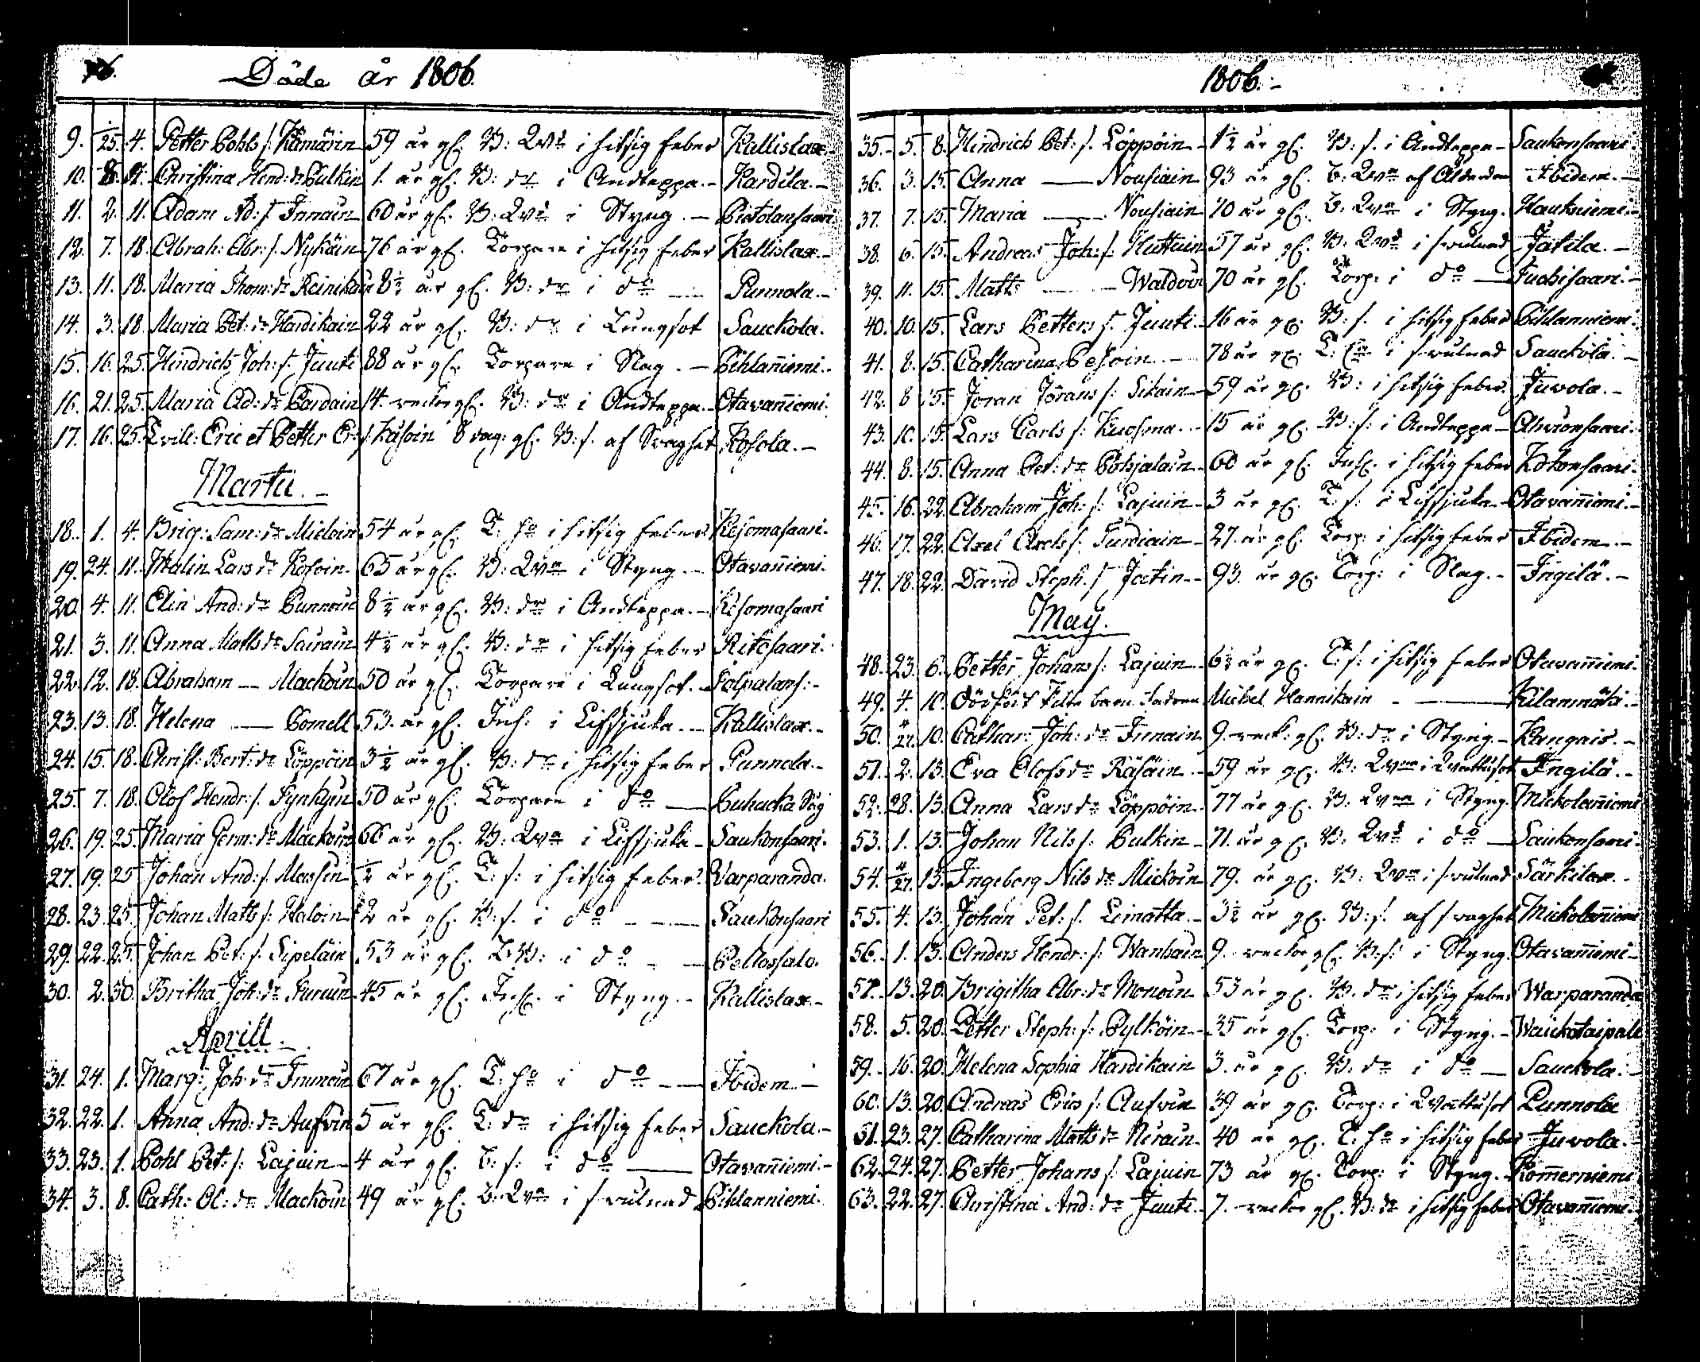 Döde år 1806.
9. 25. 4. Petter Pohls s. Hämäin 59 år gl. B: Qvs i hitsig feber Kallislax.
10. 8. 4. Christina Hend: dr Pulkin 1. år gl. B: dr i Andteppa. Kardila.
11. 2. 11. Adam Ad: s. Immain 60 år gl. B: Qvs i Styng. Pistolansaari
12. 7. 18. Abrah: Abr: s. Nykäin 76 år gl. Torpare i hitsig feber Kallislax.
13. 11. 18. Maria Thom: dr Reinikain 8½ år gl. B: dr i do Punnola.
14. 3. 18. Maria Pet: dr Hardikain 22 år gl. B: dr i Lungsot Sauckola.
15. 16. 25. Hindrich Joh: s. Juuti 88 år gl. Torpare i Slag. Pihlaniemi.
16. 21. 25. Maria Ad: dr Pardain 14. veckor gl. B: dr i Andteppa. Otavaniemi.
17. 16. 25. Tvill: Eric et Petter Er: s. Käsöin 8 dag: gl. B: s. af Svaghet Kosola.
Martii.
18. 1. 4. Brig: Sam: dr Mieloin 54 år gl. T: ho i hitsig feber Kesomasaari.
19. 24. 11. Malin Lars dr Kosoin 65 år gl. B: Qvn i Styng. Otavaniemi.
20. 4. 11. Elin And: dr Punnoin 8½ år gl. B: dr i Andteppa. Kesomasaari
21. 3. 11. Anna Matts dr Sairain 4½ år gl. B: dr i hitsig feber Kitosaari.
22. 12. 18. Abraham Mackoin 50 år gl. Torpare i Lungsot. Solpalans:
23. 13. 18. Helena Cornell 53. år gl. Inh: i Lifsjuka. Kallislax.
24. 15. 18. Christ: Bert: dr Löppöin 3½ år gl. B: dr i hitsig feber Punnola.
25. 7. 18. Olof Hendr: s. Tynkyn 50 år gl. Torpare i do Puhucka Såg
26. 19. 25. Maria Germ: dr Mackoin 66 år gl. B: Qvn i Lifsjuka Saukonsaari.
27. 19. 25 Johan And: s. Massin ½ år gl. T: s: i hitsig feber. Varparanda.
28. 23. 25. Johan Matts s. Haloin 2 år gl. B: s. i do Saukonsaari
29. 22. 25. Johan Pet: s. Sipeläin 53 år gl. B: i do Pellossalo.
30. 2. 30. Britha Joh: dr Turuin 45 år gl. Inh: i Styng. Kallislax.
Aprill.
31. 24. 1. Marg: Joh: dr Immoin 67 år gl. T: ho i do Ibidem.
32. 22. 1. Anna And: dr Aufvin 5 år gl. T: dr i hitsig feber Sauckola.
33. 23. 1. Pohl Pet: s. Lajuin 4 år gl. B: s: i do Otavaniemi.
34. 3. 8. Cath: Ol: dr Mackoin 49 år gl. B: Qvn i svulnad Pihlanniemi.
1806.
35. 5. 8. Hindrich Pet: s. Löppöin 1½ år gl. B: s. i Andteppa Saukonsaari.
36. 3. 15. Anna Nousiain 93 år gl. B: Qvn af Ålderdom Ibidem.
37. 7. 15. Maria Nousiain 70 år gl. B: Qvn i Styng. Haukniemi.
38. 6. 15. Andreas Joh: s. Huttuin 57 år gl. B: Qvs i svulnad Jatila.
39. 11. 15. Matts Waldoin 70 år gl. Torp: i do Tuohisaari.
40. 10. 15. Lars Petters s. Juuti 16 år gl. B: s. i hitsig feber Pihlanniemi.
41. 8. 15. Catharina Pesoin 78 år gl. i svulnad Sauckola.
42. 8 15. Jöran Jörans s: Sikain 59 år gl. B: i hitsig feber. Juvola.
43. 10. 15. Lars Carls s: Kuosma. 15 år gl. B: s: i Andteppa Ahvionsaari.
44. 8. 15. Anna Pet: dr Pohjalain 60 år gl. Inh: i hitsig feber Kokonsaari.
45. 16. 22. Abraham Joh: s. Lajuin 3 år gl. T: s: i Lifsjuka Otavaniemi.
46. 17. 22. Axel Axels s. Turdiain 27. år gl. Torp: i hitsig feber Ibidem.
47. 18. 22. David Steph: s. Jatin 93. år gl. Torp: i Slag. Ingilä.
May.
48. 23. 6. Petter Johans s: Lajuin 6½ år gl. T: s: i hitsig feber Otavanniemi.
49. 4. 10. dödfödt Flicko barn Fadren Michel Hannikain Kilanmäki.
50. 27. 10. Cathar: Joh: dr Immain 9. veck: gl. B: dr i Styng. Kangais.
51. 2. 13. Eva Olofs dr Räsäin 59 år gl. B: Qvn i Wattusot Ingilä.
52. 28. 13. Anna Lars dr Löppöin 77 år gl. B: Qvn i Styng. Mickolaniemi
53. 1. 13. Johan Nils s: Pulkin 71. år gl. B: Qvs i do Saukonsaari.
54. 27. 13. Ingeborg Nils dr Mickoin 79. år gl. B: Qvn i svulnad Särkilax.
55. 4. 13. Johan Pet: s: Limatta. 3½ år gl. B: s. af svaghet Mickolaniemi
56. 1. 13. Anders Hendr: s: Wanhain 9. veckor gl. B: s: i Styng. Otavaniemi.
57. 13. 20. Brigitha Abr: dr Monoin 53 år gl. B: dr i hitsig feber Warparanda
58. 5. 20. Petter Steph: s: Pylköin 35 år gl. Torp: i Styng. Wauckotaipale
59. 16. 20. Helena Sophia Hardikain 3. år gl. B: dr i do Sauckola.
60. 13. 20. Andreas Erics s: Aufvin 39 år gl. Torp: i Wattusot Punnola
61. 23. 27. Catharina Matts dr Nirain 40 år gl. T: ho i hitsig feber Juvola.
62. 24. 27. Petter Johans s: Lajuin 73 år gl. Torp: i Styng. Kommerniemi
63. 22. 27. Christina And: dr Juuti 7. veckor gl. B: dr i hitsig feber Otavaniemi.